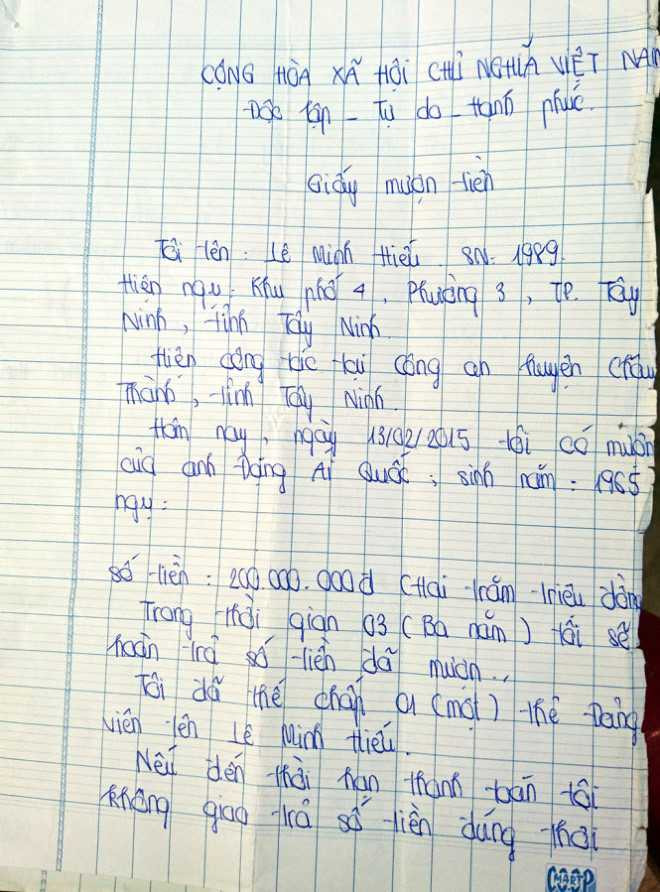 CỘNG HÒA XÃ HỘI CHỦ NGHĨA VIỆT NAM
Độc lập - Tự do - Hạnh phúc.
Giấy mượn tiền
Tôi tên: Lê Minh Hiếu. SN: 1989.
Hiện ngụ: Khu phố 4, Phường 3, TP. Tây
Ninh, tỉnh Tây Ninh.
Hiện công tác tại công an huyện Châu
Thành, tỉnh Tây Ninh.
Hôm nay, ngày 13/02/2015 tôi có mượn
của anh Đặng Ái Quốc; sinh năm: 1965
ngụ:
số tiền: 200.000.000đ (Hai trăm triệu đồng
Trong thời gian 03 (Ba năm) tôi sẽ
hoàn trả số tiền đã mượn..
Tôi đã thế chấp 01 (một) thẻ Đảng
viên tên Lê Minh Hiếu.
Nếu đến thời hạn thanh toán tôi
không giao trả số tiền đúng thời